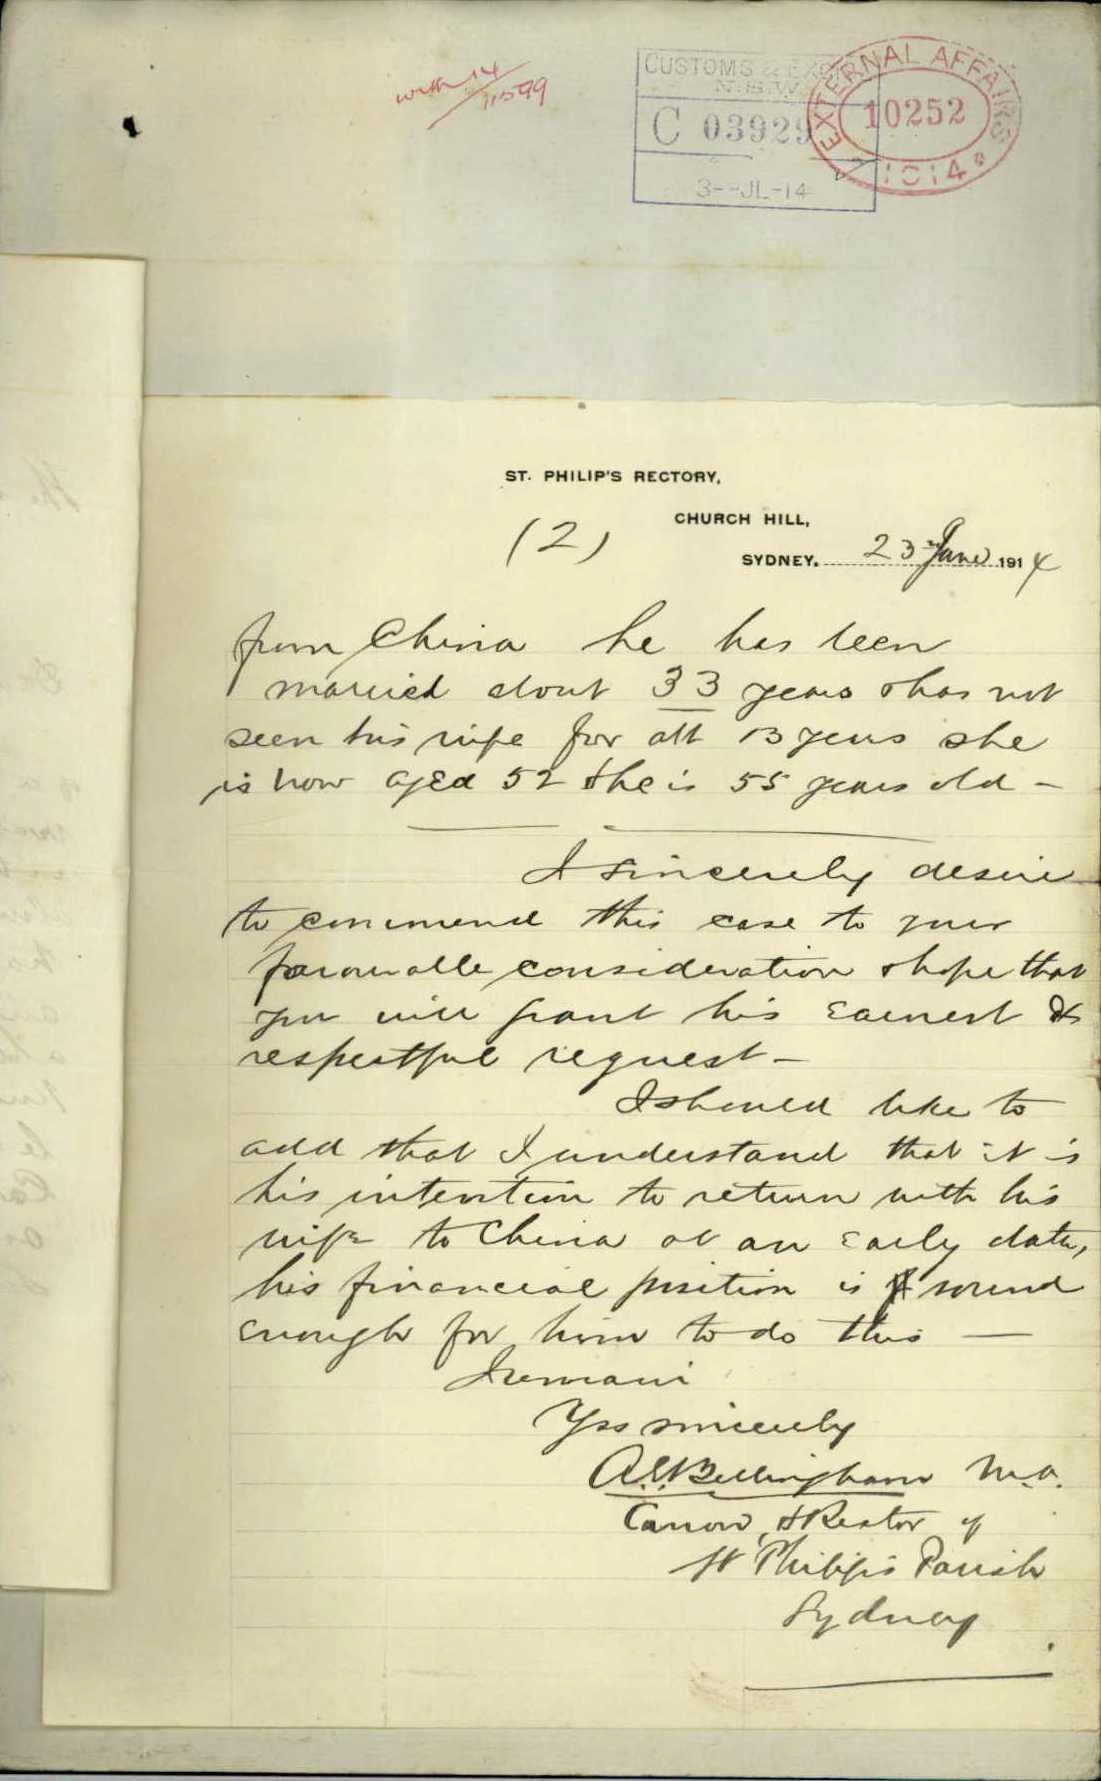 with 14/11599
CUSTOMS & EXCISE
N.S.W.
C 03929
3--JL-14
EXTERNAL AFFAIRS
10252
1914
ST. PHILIP'S RECTORY,
CHURCH HILL,
(2)
SYDNEY. 23 June 1914
from China he has been
married about 33 years & has not
seen his wife for abt 13 years she
is now aged 52 & he is 55 years old -
I sincerely desire
to commend this case to your
favourable consideration & hope that
you will grant his earnest &
respectful request -
I should like to
add that I understand that it is
his intention to return with his
wife to China at an early date,
his financial position is sound
enough for him to do this -
I remain
Yrs sincerely
Bellingham M.A.
Canon, & Rector of
St Philip's Parish
Sydney